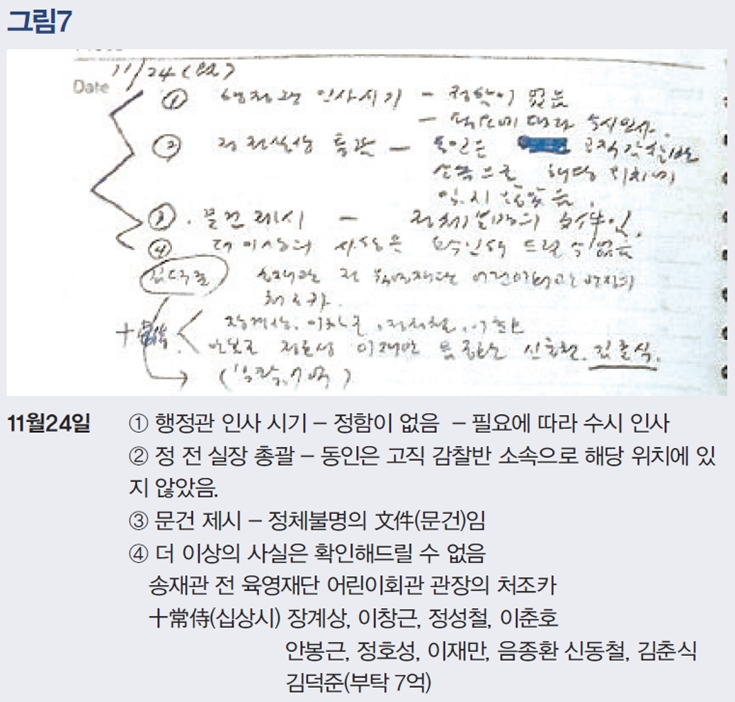 그림7
Date 11/24(月)
① 행정관 인사시기 - 정함이 없음
- 필요에 따라 수시인사.
② 정 전실장 총괄 - 동인은 공직감찰반
소속으로 해당 위치에
있지 않았음.
③ 문건 제시 - 정체불명의 文件임.
④ 더 이상의 사실은 확인해 드릴 수 없음
송재관 전 육영재단 어린이회관 관장의
처조카.
十常侍 장계상, 이창근, 정성철, 이춘호
안봉근 정호성 이재만 음종환 신동철. 김춘식.
11월24일 ① 행정관 인사 시기 – 정함이 없음 – 필요에 따라 수시 인사
② 정 전 실장 총괄 – 동인은 고직 감찰반 소속으로 해당 위치에 있
지 않았음.
③ 문건 제시 – 정체불명의 文件(문건)임
④ 더 이상의 사실은 확인해드릴 수 없음
송재관 전 육영재단 어린이회관 관장의 처조카
十常侍(십상시) 장계상, 이창근, 정성철, 이춘호
안봉근, 정호성, 이재만, 음종환 신동철, 김춘식
김덕준(부탁 7억)